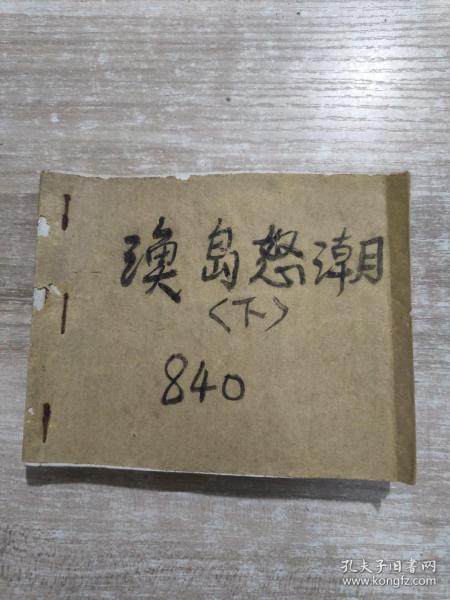 渔岛怒潮
〈下〉
840
孔夫子旧书网
www.kongfz.com